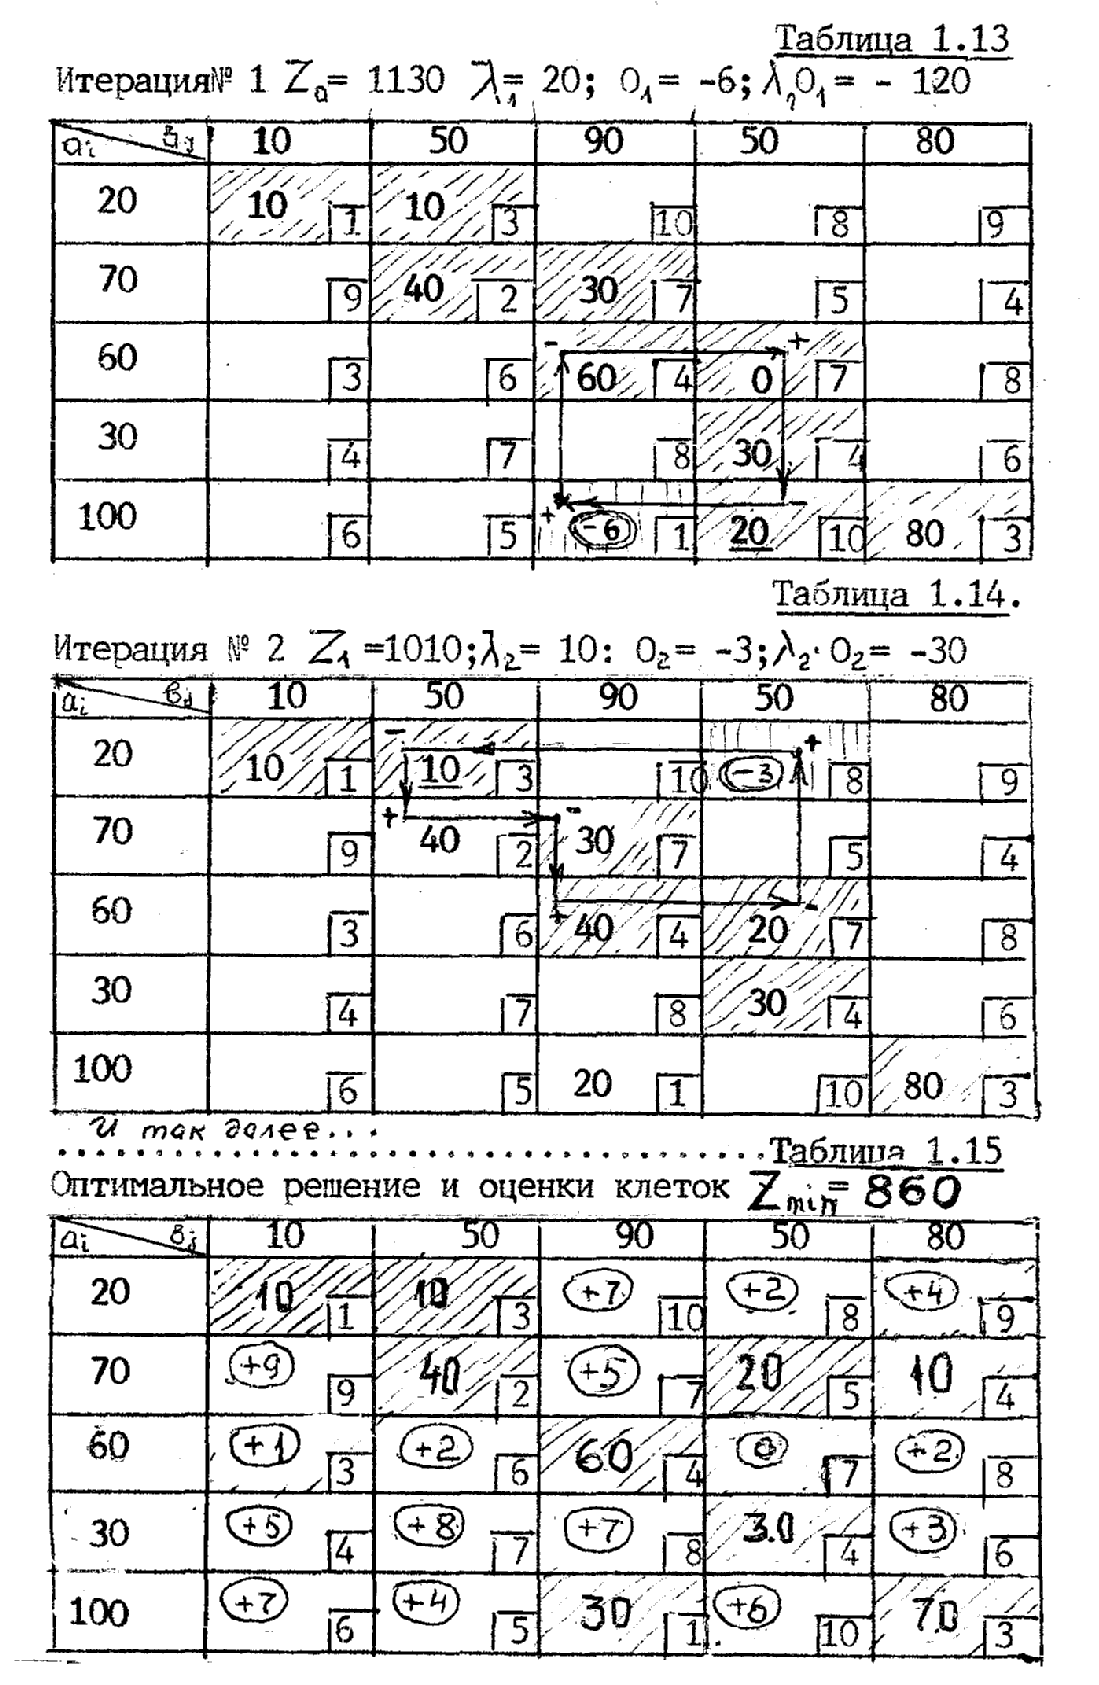 Таблица 1.13
Итерация№ 1 Z₀= 1130 λ₁= 20; O₁= -6; λ₁O₁= - 120
aᵢ вⱼ 10 50 90 50 80
20 10 1 10 3 10 8 9
70 9 40 2 30 7 5 4
60 3 6 - 60 4 + 0 7 8
30 4 7 8 30 4 6
100 6 5 + -6 1 - 20 10 80 3
Таблица 1.14.
Итерация № 2 Z₁ =1010; λ₂= 10: O₂= -3; λ₂· O₂= -30
aᵢ вⱼ 10 50 90 50 80
20 10 1 - 10 3 10 + -3 8 9
70 9 + 40 2 - 30 7 5 4
60 3 6 + 40 4 - 20 7 8
30 4 7 8 30 4 6
100 6 5 20 1 10 80 3
И так далее...
Таблица 1.15
Оптимальное решение и оценки клеток Zmin= 860
aᵢ вⱼ 10 50 90 50 80
20 10 1 10 3 +7 10 +2 8 +4 9
70 +9 9 40 2 +5 7 20 5 10 4
60 +1 3 +2 6 60 4 0 7 +2 8
30 +5 4 +8 7 +7 8 30 4 +3 6
100 +7 6 +4 5 30 1 +6 10 70 3